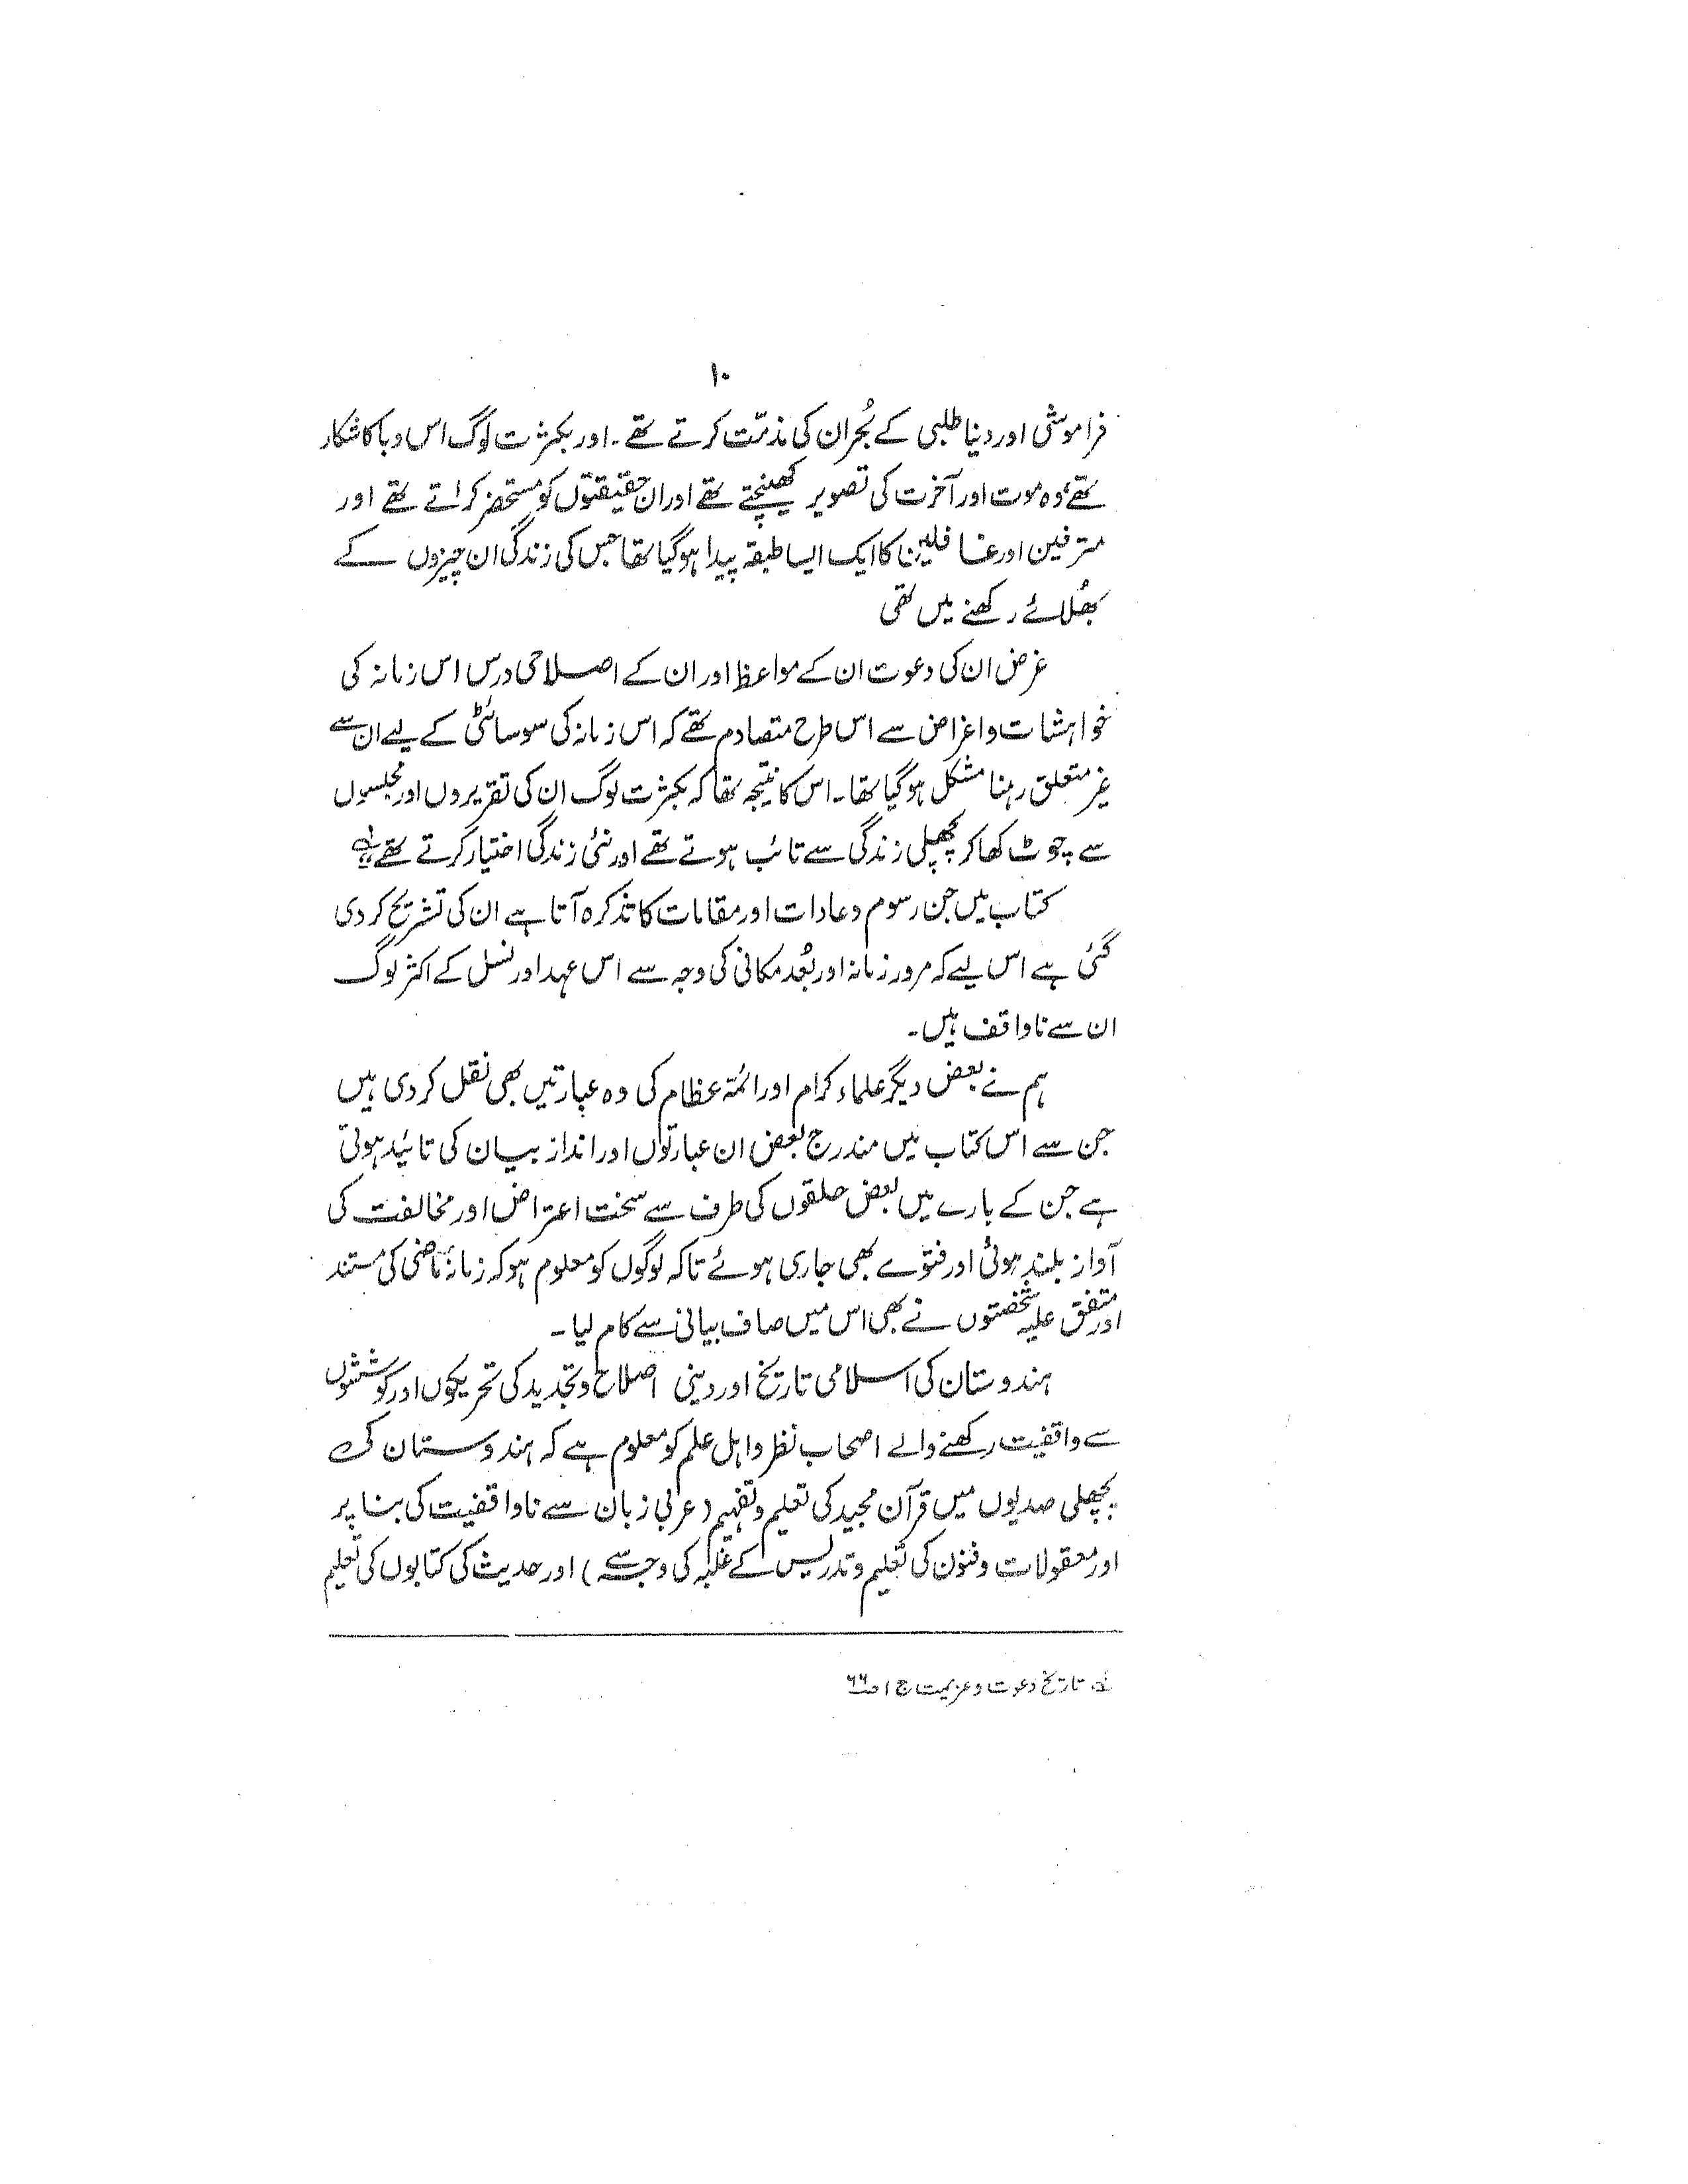 ۱۰
فراموشی اور دنیا طلبی کے بُحران کی مذمّت کرتے تھے۔ اور بکثرت لوگ اس وبا کا شکار
تھے، وہ موت اور آخرت کی تصویر کھینچتے تھے اور ان حقیقتوں کو مستحضر کراتے تھے اور
مترفین اور غافلین کا ایک ایسا طبقہ پیدا ہو گیا تھا جس کی زندگی ان چیزوں کے
بھُلائے رکھنے میں تھی
غرض ان کی دعوت ان کے مواعظ اور ان کے اصلاحی درس اس زمانہ کی
خواہشات و اغراض سے اس طرح متصادم تھے کہ اس زمانہ کی سوسائٹی کے لیے ان سے
غیر متعلق رہنا مشکل ہو گیا تھا۔ اس کا نتیجہ تھا کہ بکثرت لوگ ان کی تقریروں اور مجلسوں
سے چوٹ کھا کر پچھلی زندگی سے تائب ہوتے تھے اور نئی زندگی اختیار کرتے تھے۔ لہ
کتاب میں جن رسوم و عادات اور مقامات کا تذکرہ آتا ہے ان کی تشریح کر دی
گئی ہے اس لیے کہ مرور زمانہ اور بُعد مکانی کی وجہ سے اس عہد اور نسل کے اکثر لوگ
ان سے ناواقف ہیں۔
ہم نے بعض دیگر علماء کرام اور ائمۂ عظام کی وہ عبارتیں بھی نقل کر دی ہیں
جن سے اس کتاب میں مندرج بعض ان عبارتوں اور انداز بیان کی تائید ہوتی
ہے جن کے بارے میں بعض حلقوں کی طرف سے سخت اعتراض اور مخالفت کی
آواز بلند ہوئی اور فتوے بھی جاری ہوئے تاکہ لوگوں کو معلوم ہو کہ زمانۂ ماضی کی مستند
اور متفق علیہ شخصتوں نے بھی اس میں صاف بیانی سے کام لیا۔
ہندوستان کی اسلامی تاریخ اور دینی اصلاح و تجدید کی تحریکوں اور کوششوں
سے واقفیت رکھنے والے اصحاب نظر و اہل علم کو معلوم ہے کہ ہندوستان کی
پچھلی صدیوں میں قرآن مجید کی تعلیم و تفہیم (عربی زبان سے ناواقفیت کی بنا پر
اور معقولات و فنون کی تعلیم و تدریس کے غلبہ کی وجہ سے) اور حدیث کی کتابوں کی تعلیم
لہ تاریخ دعوت و عزیمت ج ۱ ص ۶۶